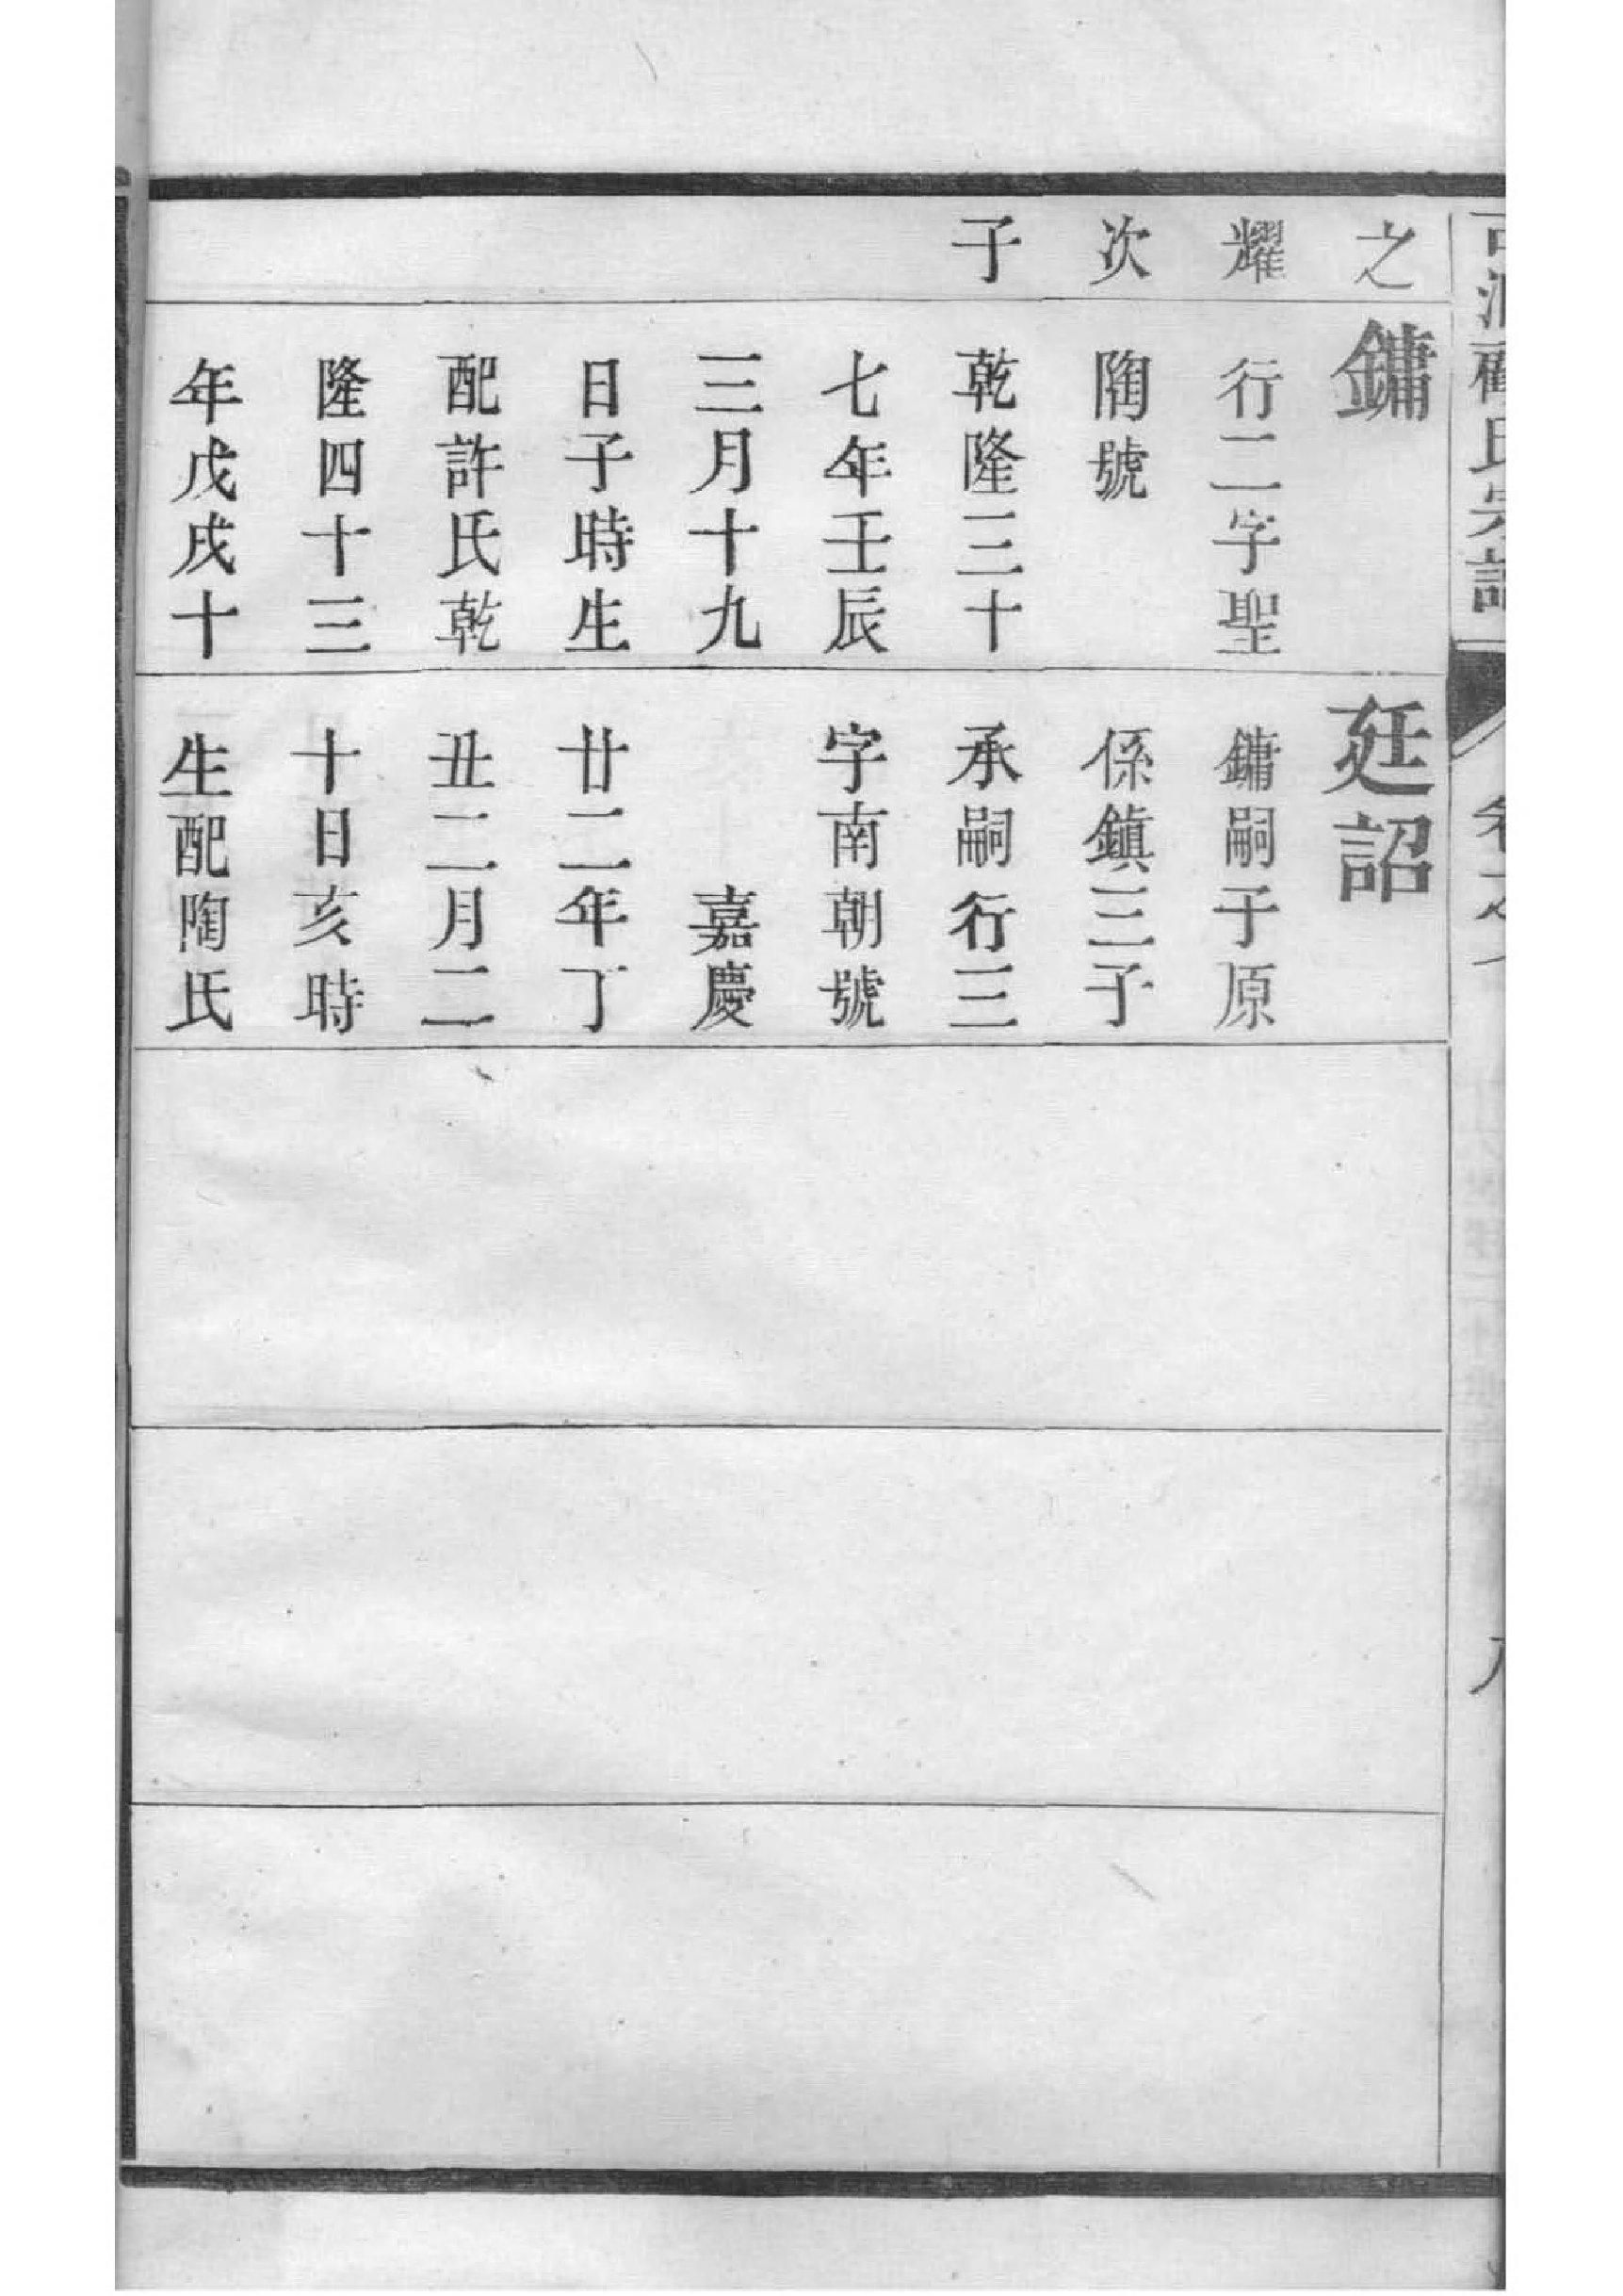 氏宗譜
卷之
之
耀
次
子
鏞
行二字聖
陶號
乾隆三十
七年壬辰
三月十九
日子時生
配許氏乾
隆四十三
年戊戌十
廷詔
鏞嗣子原
係鎮三子
承嗣行三
字南朝號
嘉慶
廿二年丁
丑二月二
十日亥時
生配陶氏